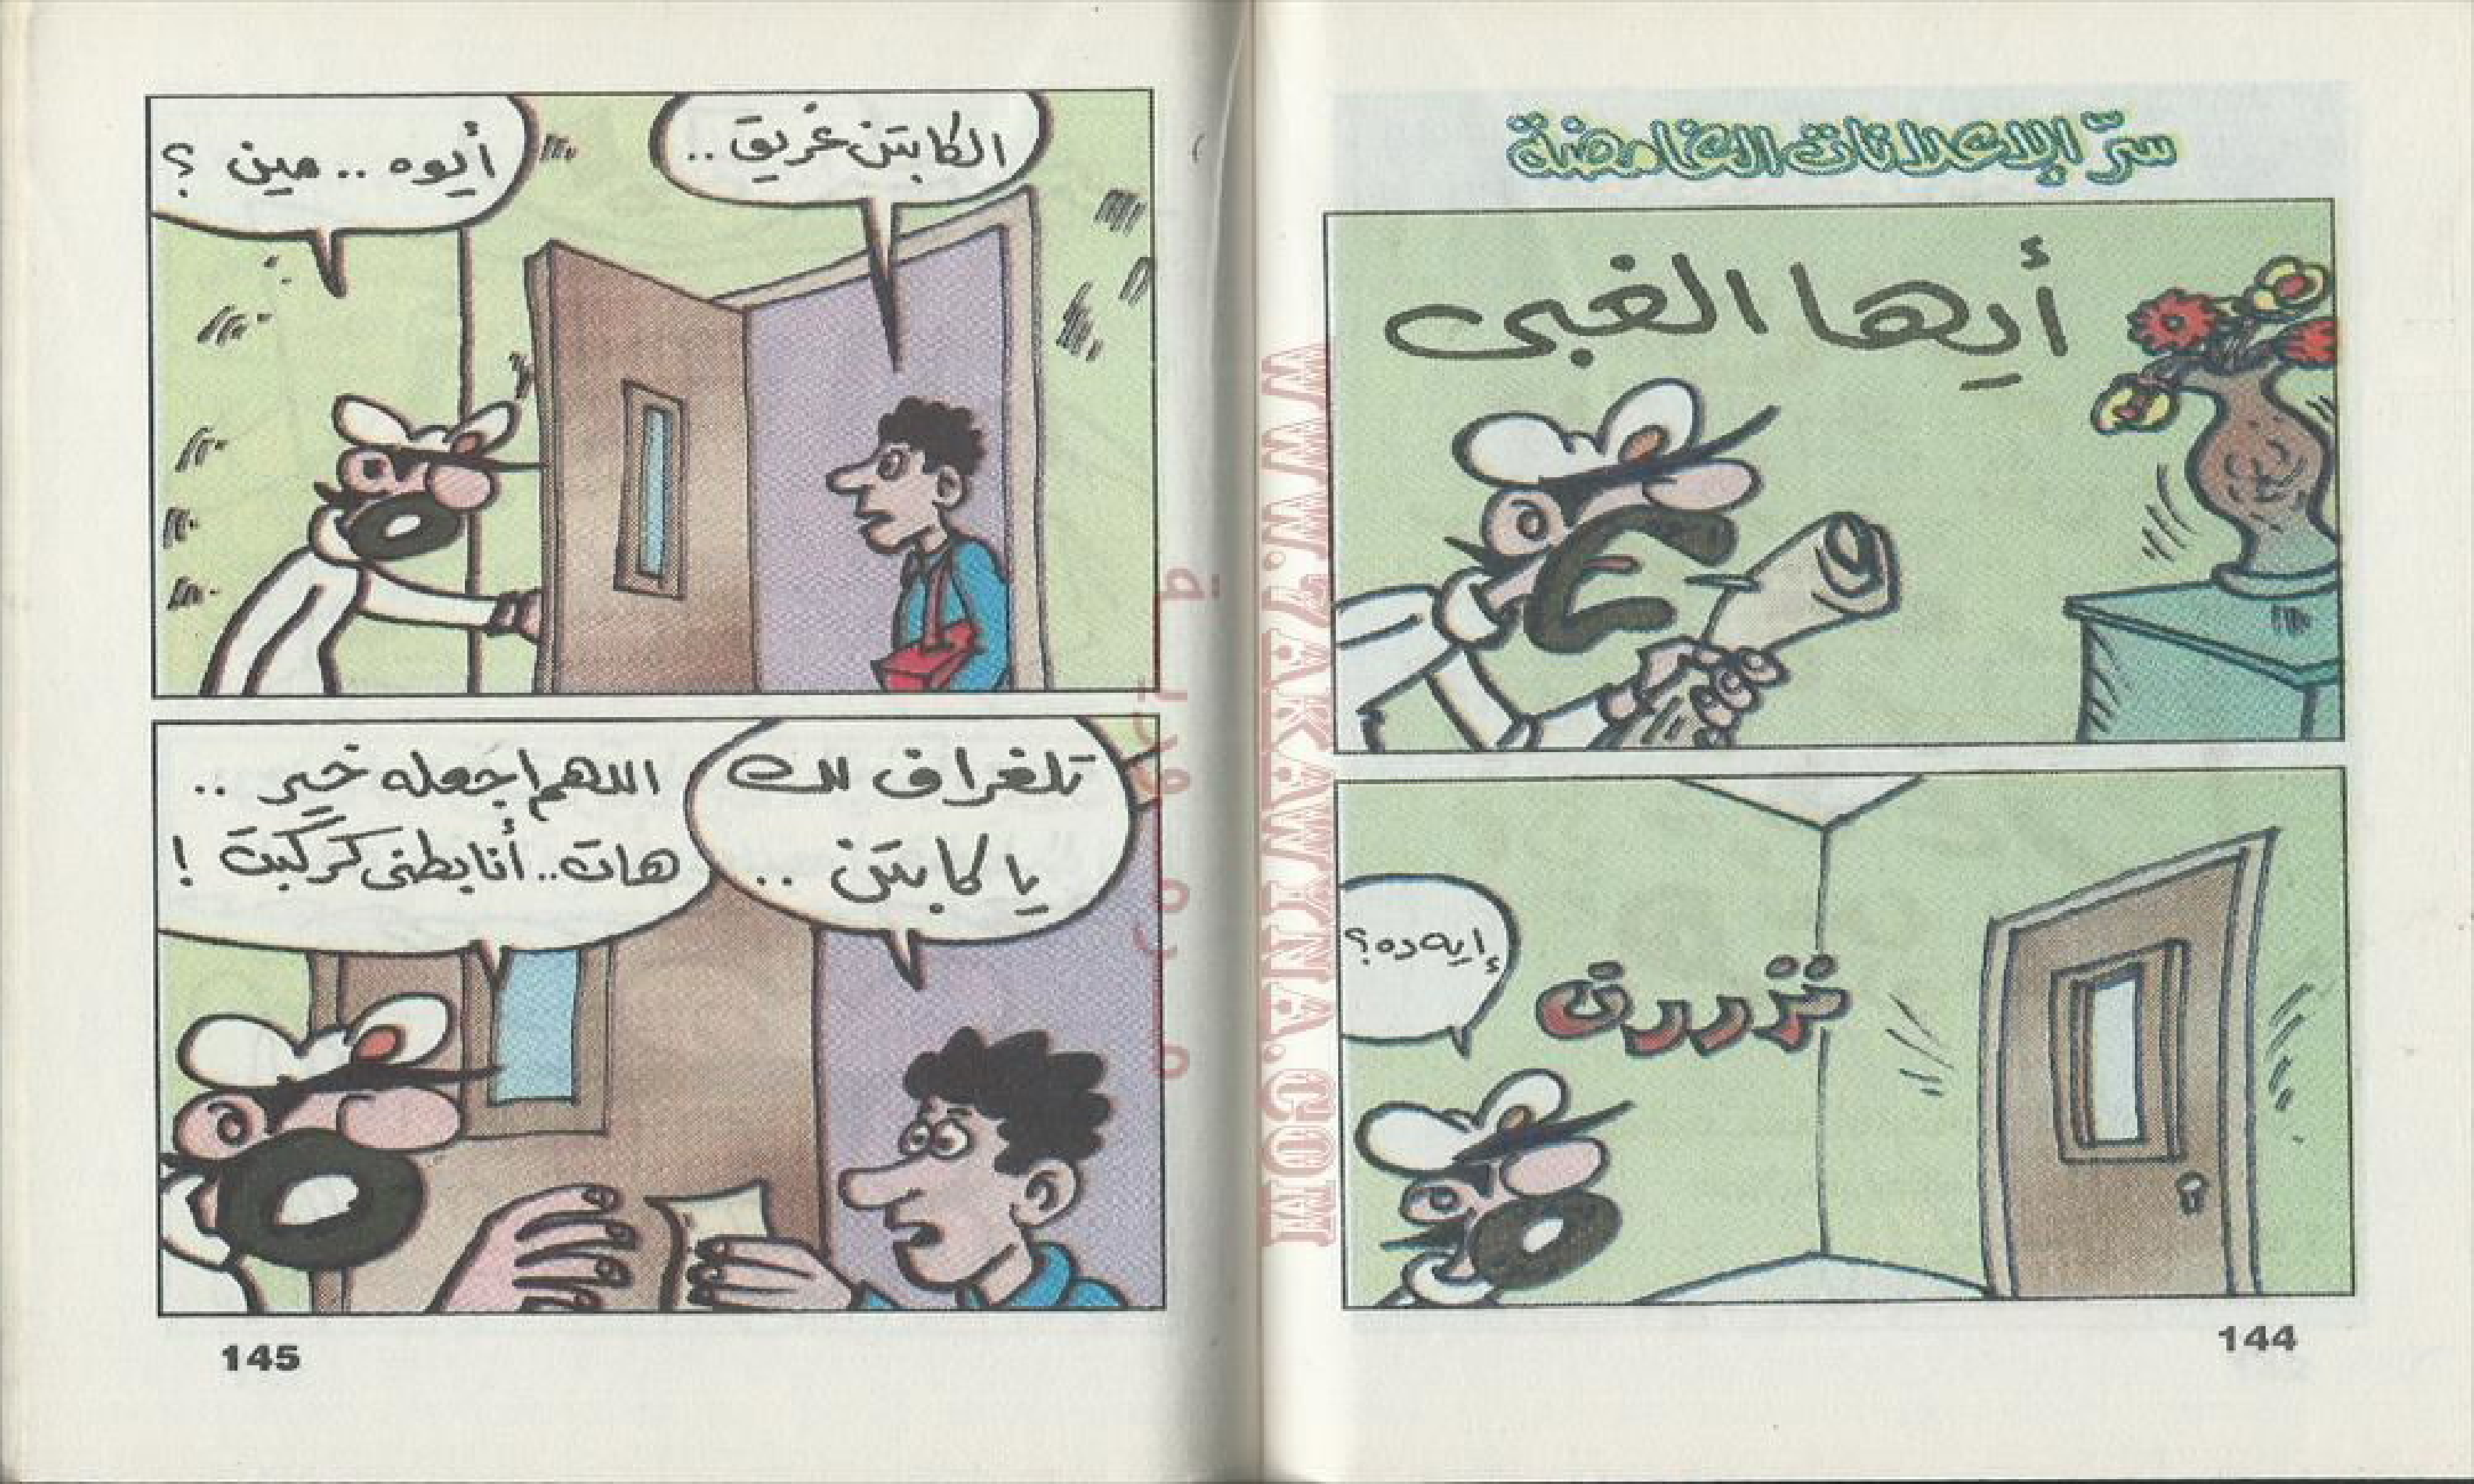 سرّ الإعلانات الغامضة
أيها الغبى
إيه ده؟
تررررن
144
الكابتن غريق..
أيوه .. مين ؟
تلغراف لك
يا كابتن ..
اللهم اجعله خير ..
هات.. أنا بطنى كركبت !
145
WWW.7AKAWYNA.COM